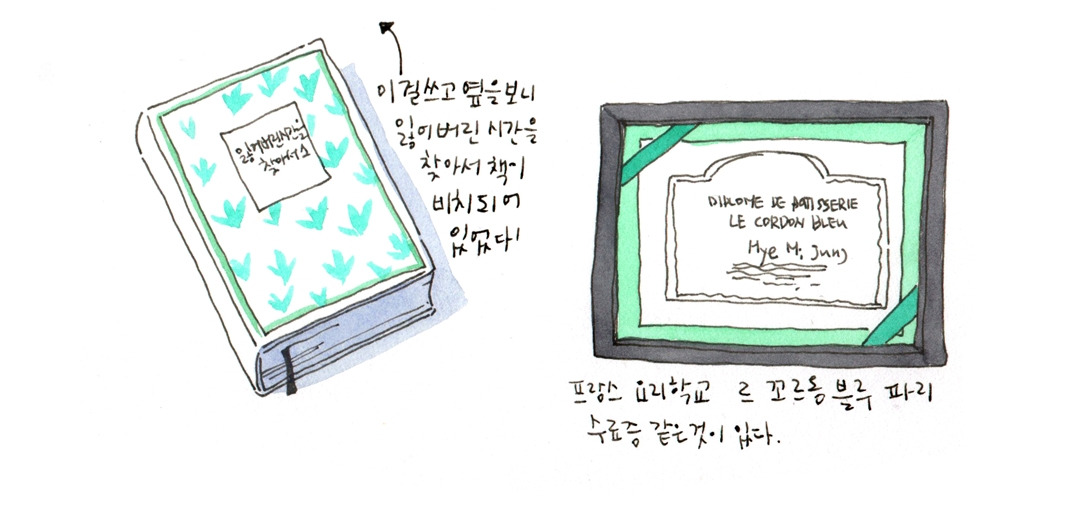 잃어버린시간을
찾아서 1
이걸쓰고 옆을보니
잃어버린 시간을
찾아서 책이
비치되어
있었다!
DIPLOME DE PATISSERIE
LE CORDON BLEU
Hye Mi Jung
프랑스 요리학교 르 꼬르동 블루 파리
수료증 같은것이 있다.